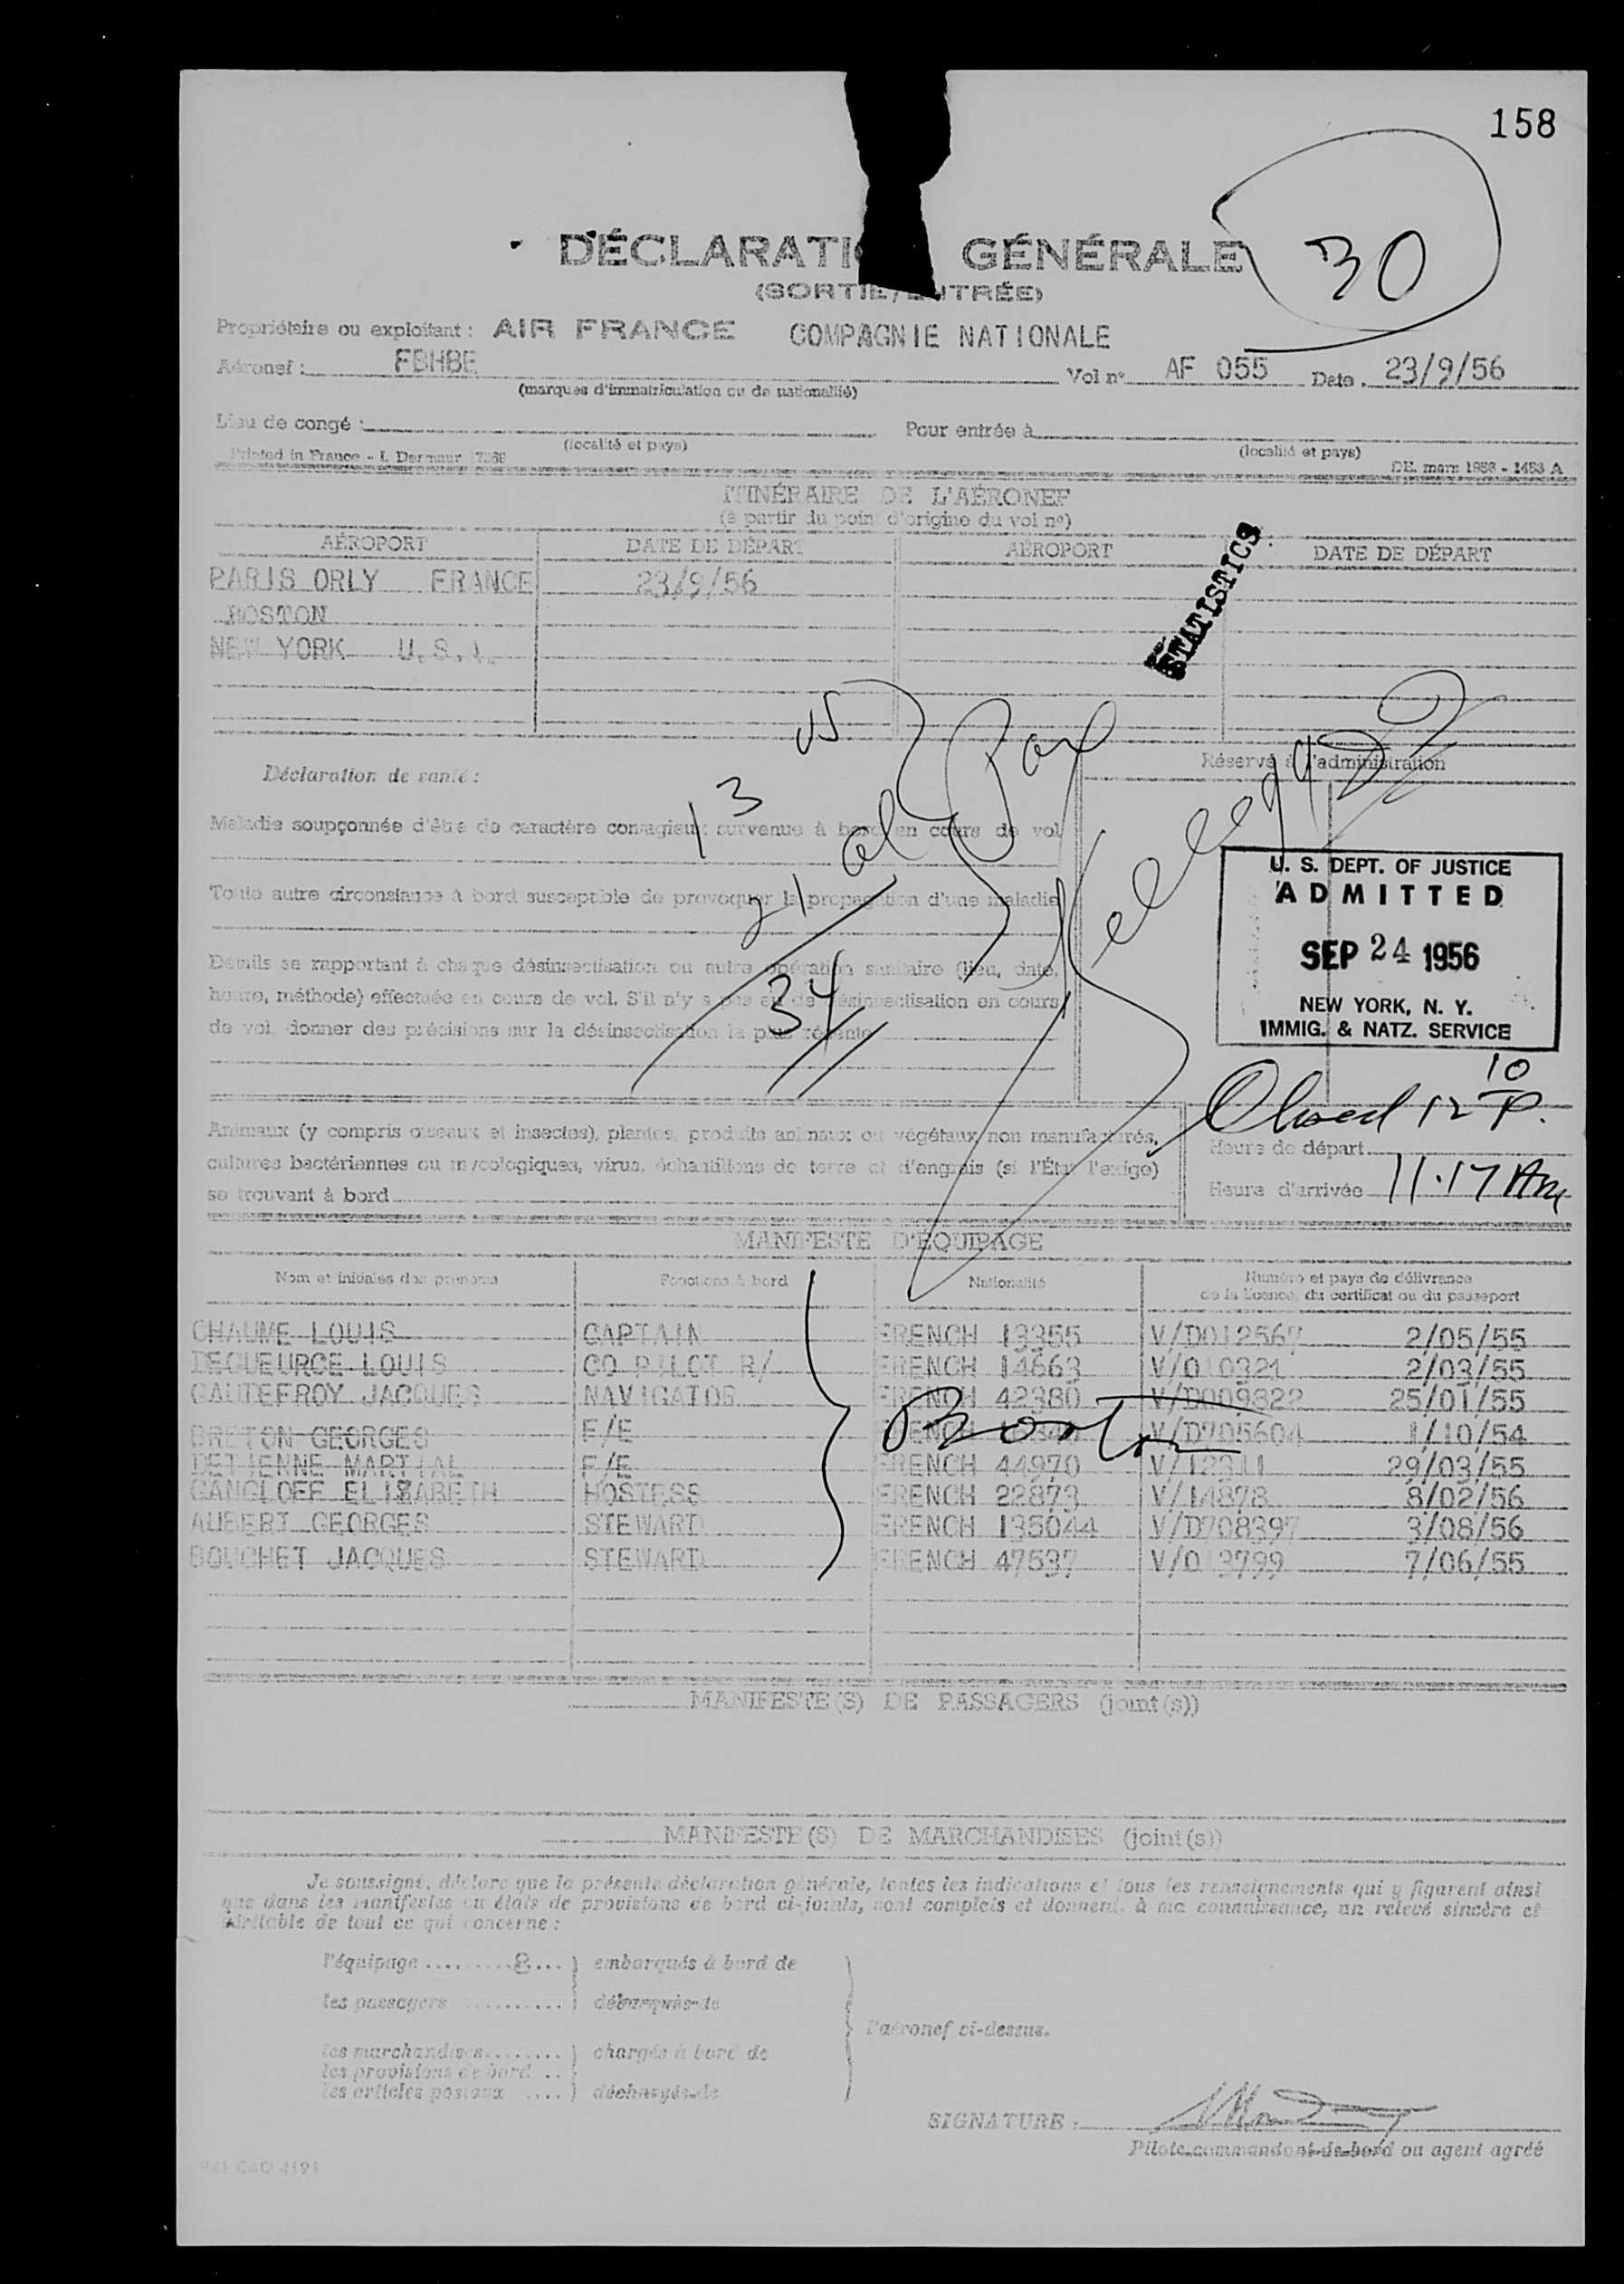 158
30
DÉCLARATI GÉNÉRALE
(SORTIE/ENTRÉE)
Propriétaire ou exploitant : AIR FRANCE COMPAGNIE NATIONALE
Aéronef : FBHBE Vol n° AF 055 Date 23/9/56
(marques d'immatriculation ou de nationalité)
Lieu de congé : Pour entrée à
(localité et pays) (localité et pays)
Printed in France - I. DE. mars 1956 - 1453 A
ITINÉRAIRE DE L'AÉRONEF
(à partir du point d'origine du vol n°)
AÉROPORT DATE DE DÉPART AÉROPORT DATE DE DÉPART
PARIS ORLY FRANCE 23/9/56
BOSTON
NEW YORK U.S.A.
STATISTICS
Déclaration de santé : Réservé à l'administration
13 US
Maladie soupçonnée d'être de caractère contagieux survenue à bord en cours de vol
21 al
Toute autre circonstance à bord susceptible de provoquer la propagation d'une maladie
34
Détails se rapportant à chaque désinsectisation ou autre opération sanitaire (lieu, date,
heure, méthode) effectuée en cours de vol. S'il n'y a pas eu de désinsectisation en cours
de vol, donner des précisions sur la désinsectisation la plus récente
U. S. DEPT. OF JUSTICE
ADMITTED
SEP 24 1956
NEW YORK, N. Y.
IMMIG. & NATZ. SERVICE
12 10 P.
Animaux (y compris oiseaux et insectes), plantes, produits animaux ou végétaux non manufacturés,
cultures bactériennes ou mycologiques, virus, échantillons de terre et d'engrais (si l'État l'exige)
se trouvant à bord
Heure de départ
Heure d'arrivée 11.17 AM
MANIFESTE D'ÉQUIPAGE
Nom et initiales des prénoms Fonctions à bord Nationalité Numéro et pays de délivrance
de la licence, du certificat ou du passeport
CHAUME LOUIS CAPTAIN FRENCH 13355 V/D012567 2/05/55
DEGUEURCE LOUIS CO PILOT R/ FRENCH 14663 2/03/55
GAUTEFROY JACQUES NAVIGATOR FRENCH 42380 V/D009822 25/01/55
BRETON GEORGES F/E FRENCH V/D705604 1/10/54
DETIENNE MARTIAL F/E FRENCH 44970 29/03/55
GANGLOFF ELISABETH HOSTESS FRENCH 22873 V/14878 8/02/56
AUBERT GEORGES STEWARD FRENCH 135044 V/D708397 3/08/56
BOUCHET JACQUES STEWARD FRENCH 47537 7/06/55
Boston
MANIFESTE(S) DE PASSAGERS (joint(s))
MANIFESTE(S) DE MARCHANDISES (joint(s))
Je soussigné, déclare que la présente déclaration générale, toutes les indications et tous les renseignements qui y figurent ainsi
que dans les manifestes ou états de provisions de bord ci-joints, sont complets et donnent, à ma connaissance, un relevé sincère et
véritable de tout ce qui concerne :
l'équipage .........8... embarqués à bord de
les passagers .......... débarqués de
l'aéronef ci-dessus.
les marchandises........ chargés à bord de
les provisions de bord ..
les articles postaux .... déchargés de
SIGNATURE :
Pilote commandant de bord ou agent agréé